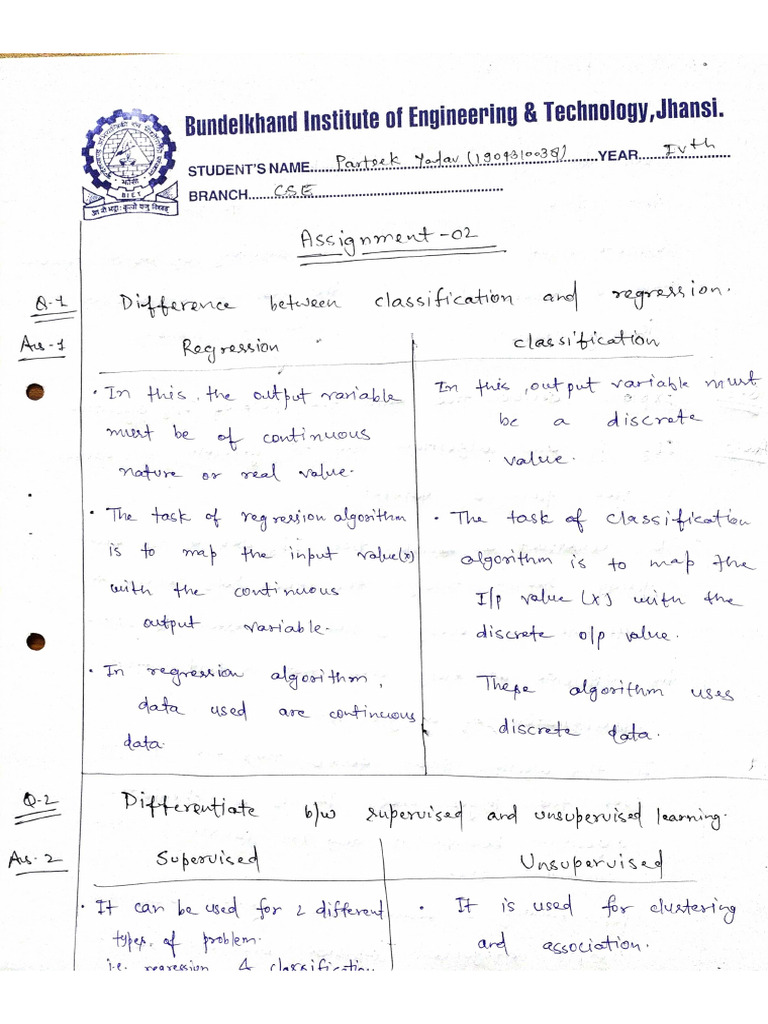 Bundelkhand Institute of Engineering & Technology, Jhansi.
STUDENT'S NAME Parteek Yadav (1904310038) YEAR IVth
BRANCH CSE
BIET
Assignment-02
Q-1 Difference between classification and regression.
Ans-1 Regression
• In this, the output variable
must be of continuous
nature or real value.
• The task of regression algorithm
is to map the input value(x)
with the continuous
output variable.
• In regression algorithm,
data used are continuous
data.
classification
In this, output variable must
be a discrete
value.
• The task of classification
algorithm is to map the
I/p value (x) with the
discrete o/p value.
These algorithm uses
discrete data.
Q-2 Differentiate b/w supervised and unsupervised learning.
Ans-2 Supervised
• It can be used for 2 different
types of problem.
i.e. regression & classification
Unsupervised
• It is used for clustering
and association.